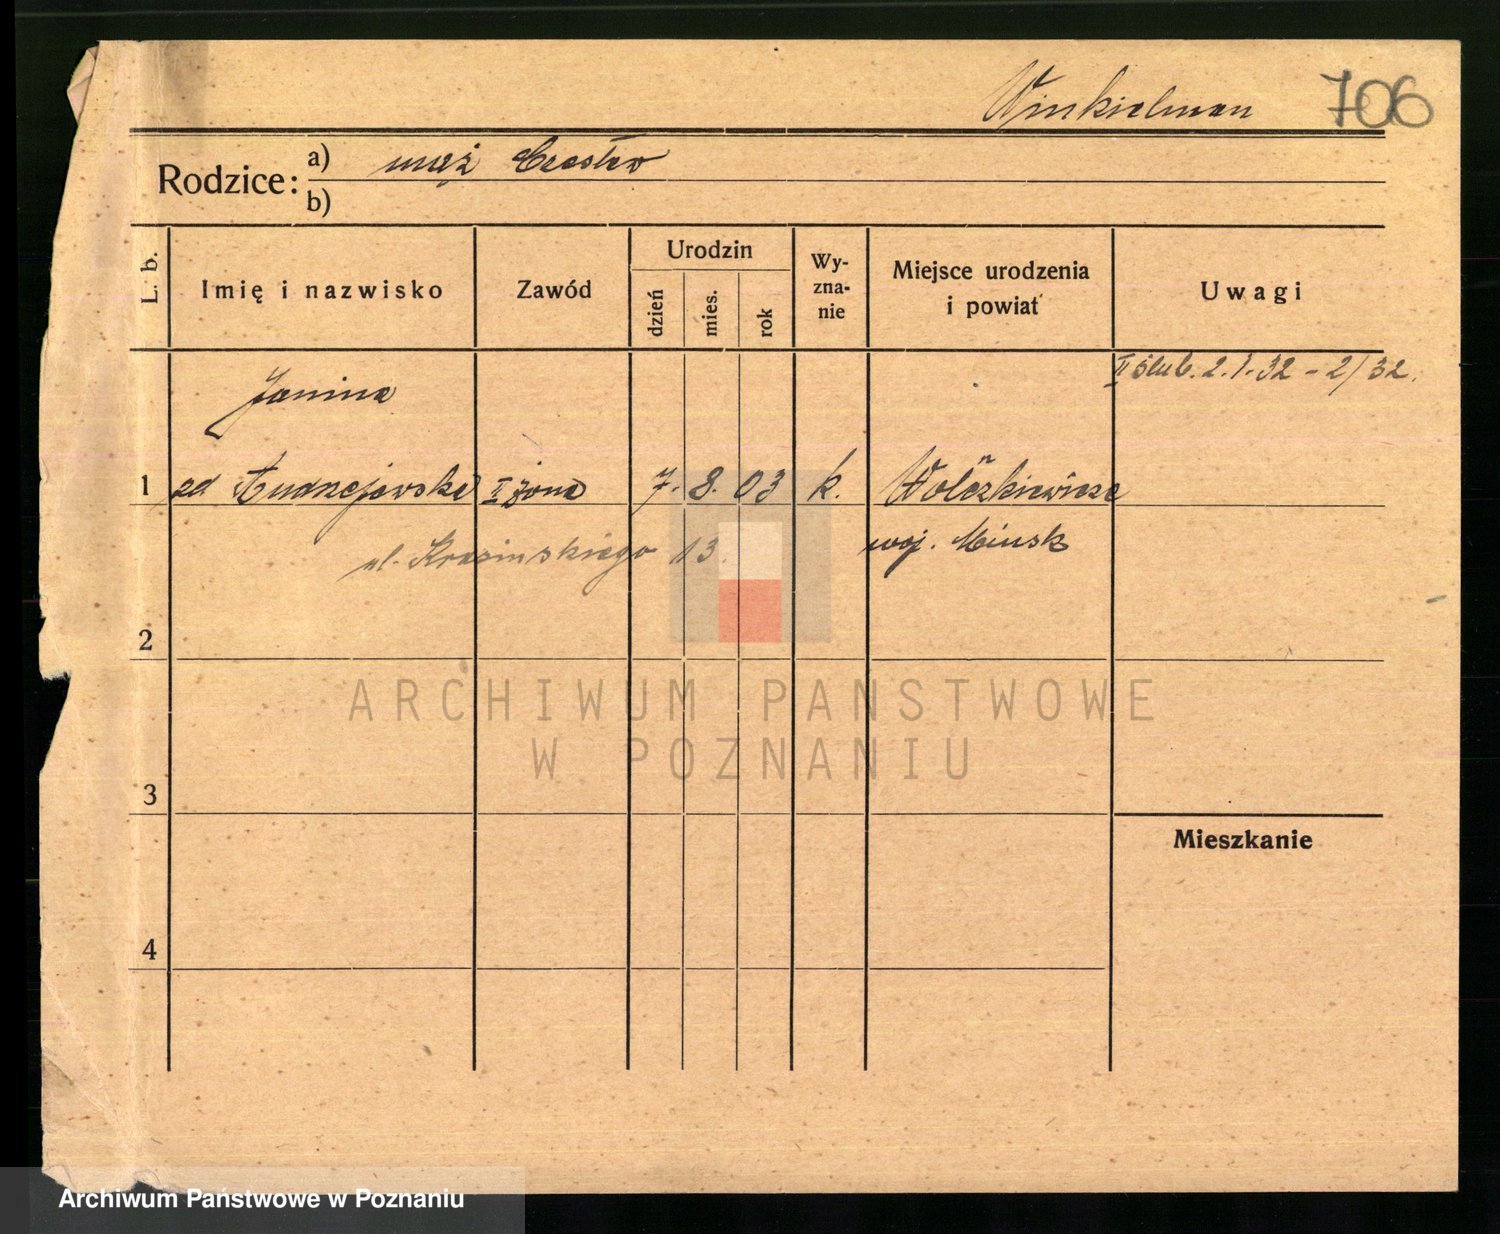 Winkielman 706
Rodzice: a) mąż Czesław
b)
L. b.
Imię i nazwisko
Zawód
Urodzin
dzień
mies.
rok
Wy-
zna-
nie
Miejsce urodzenia
i powiat
Uwagi
II ślub. 2.1.32 - 2/32.
Janina
1 zd Andrzejewska II żona 7. 8. 03 k.
ul. Krasińskiego 13.
woj. Mińsk
2
3
4
Mieszkanie
ARCHIWUM PAŃSTWOWE
W POZNANIU
Archiwum Państwowe w Poznaniu